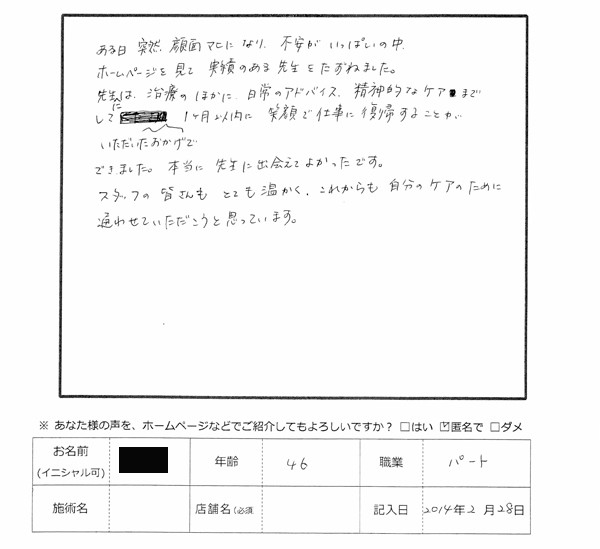 ある日 突然、顔面マヒになり、不安がいっぱいの中、
ホームページを見て 実績のある先生をたずねました。
先生は、治療のほかに、日常のアドバイス、精神的なケアまで
して いただいたおかげで 1ヶ月以内に 笑顔で仕事に復帰することが
できました。本当に 先生に出会えてよかったです。
スタッフの皆さんも とても温かく、これからも 自分のケアのために
通わせていただこうと思っています。
※ あなた様の声を、ホームページなどでご紹介してもよろしいですか? □はい ☑匿名で □ダメ
お名前 (イニシャル可) 年齢 46 職業 パート
施術名 店舗名(必須 記入日 2014年2月28日